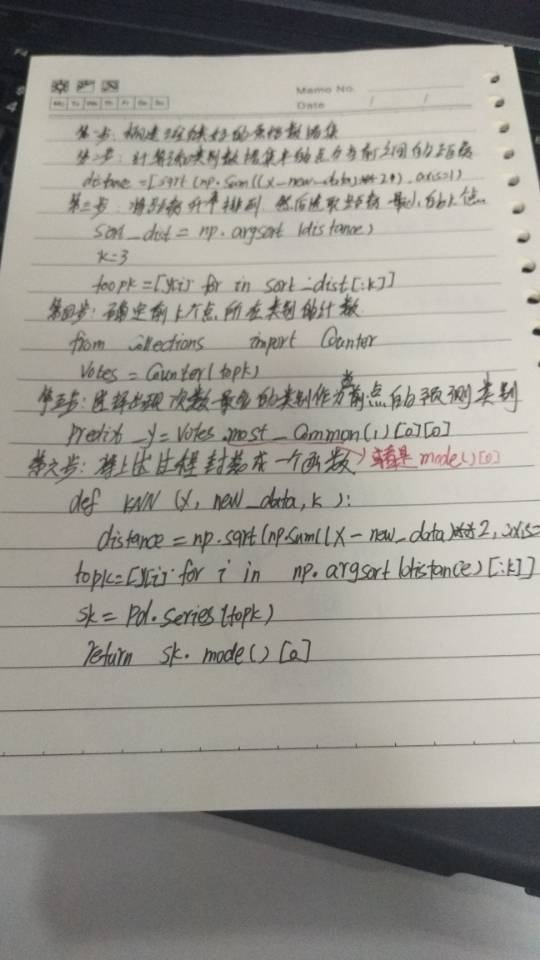 Memo No.
Mo Tu We Th Fr Sa Su
Date / /
第一步: 构建 的原始数据集
第二步: 计算 类别数据集中的点与 之间的距离
distance = [sqrt (np.sum((x-new_data)**2), axis=1)
第三步: 将距离升序排列 然后选取距离最小的k个点
sort_dist = np.argsort (distance)
k=3
topk = [y[i] for in sort_dist[:k]]
第四步: 确定前k个点所在类别的计数
from collections import Counter
Votes = Counter(topk)
第五步: 选择出现次数最多的类别作为当前点的预测类别
Predit_y = Votes.most_Common(1)[0][0]
第六步: 将上述过程封装成一个函数 或者是 mode()[0]
def KNN (X, new_data, k):
distance = np.sqrt(np.sum((X-new_data)**2, axis=
topk=[y[i] for i in np.argsort(distance)[:k]]
sk = Pd.series(topk)
return sk.mode()[0]